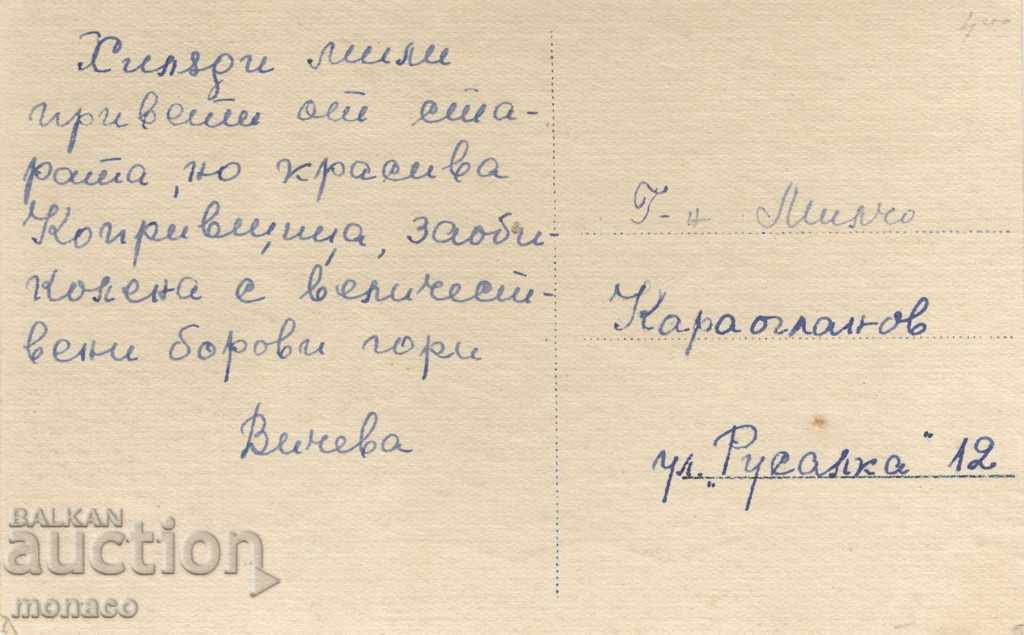 Хиляди мили
привети от ста-
рата, но красива
Копривщица, заоби-
колена с величест-
вени борови гори
Вичева
Г-н Милчо
Караогланов
ул. „Русалка" 12
BALKAN
auction
monaco